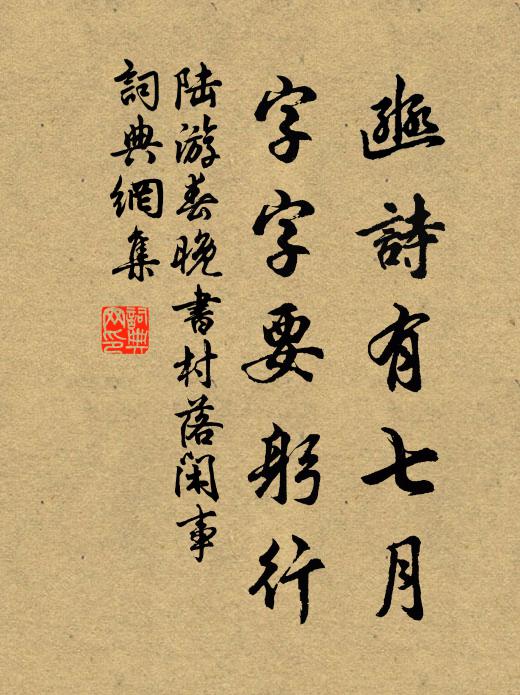 豳詩有七月
字字要躬行
陸游春晚書村落閑事
詞典網集
詞典网印